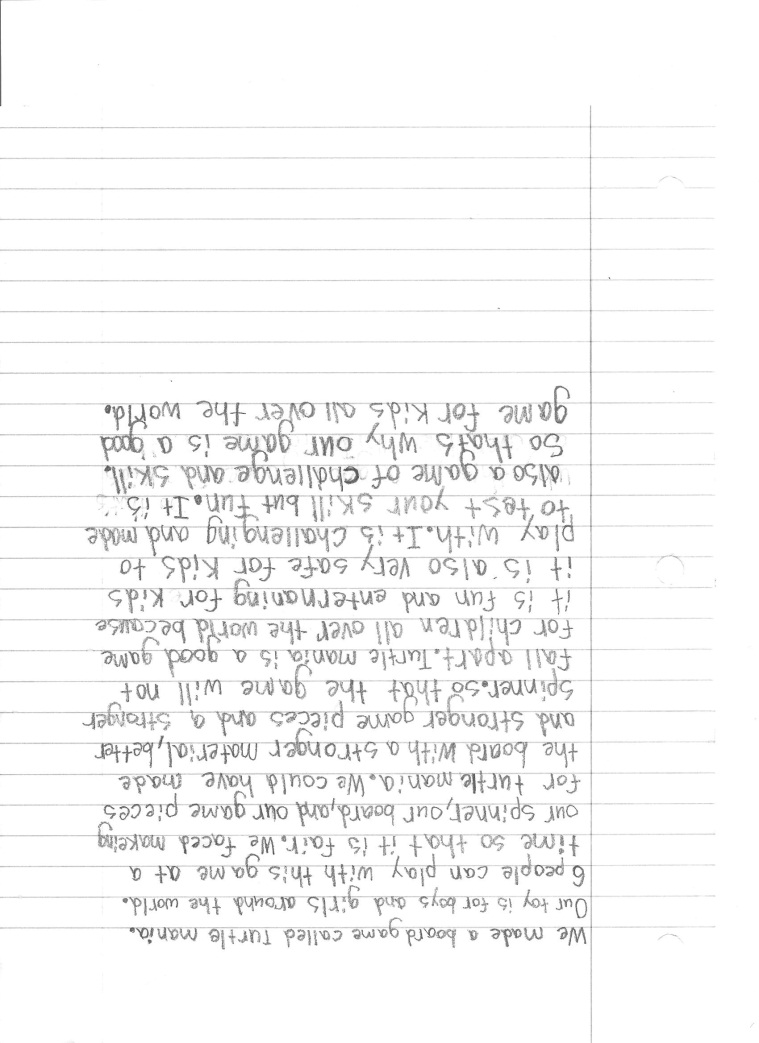 We made a board game called Turtle mania.
Our toy is for boys and girls around the world.
6 people can play with this game at a
time so that it is fair. We faced makeing
our spinner, our board, and, our game pieces
for turtle mania. We could have made
the board with a stronger material, better
and stronger game pieces and a stronger
spinner. so that the game will not
fall apart. Turtle mania is a good game
for children all over the world because
it is fun and enternaning for kids
it is also very safe for kids to
play with. It is challenging and made
to test your skill but fun. It is
also a game of challenge and skill.
So thats why our game is a good
game for kids all over the world.